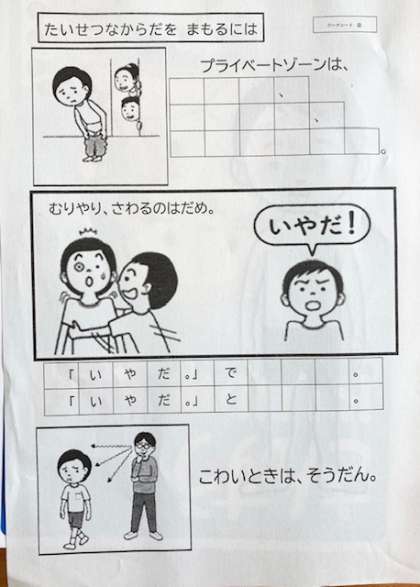 たいせつなからだを まもるには
プライベートゾーンは、
、
、
。
むりやり、さわるのはだめ。
いやだ！
「いやだ。」で 。
「いやだ。」と 。
こわいときは、そうだん。